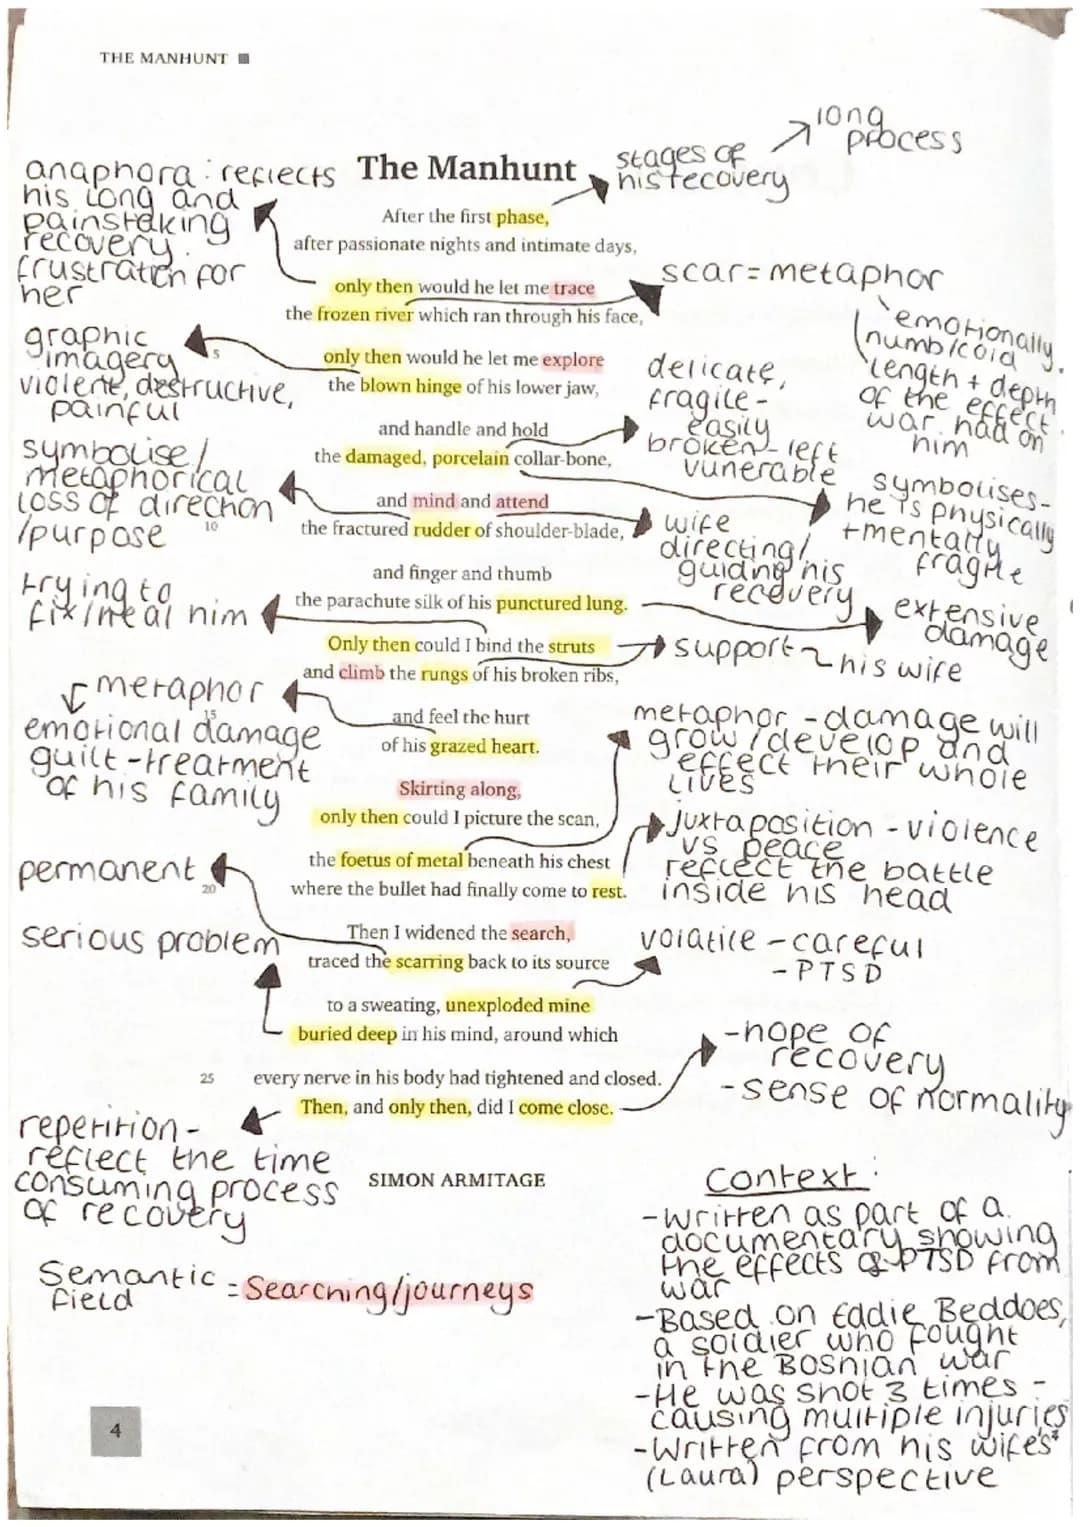 THE MANHUNT
long
process
The Manhunt
stages of
his recovery
anaphora : reflects
his long and
painstaking
recovery.
frustration for
her
After the first phase,
after passionate nights and intimate days,
only then would he let me trace
the frozen river which ran through his face,
scar = metaphor
emotionally
numb/cold
length + depth
of the effect
war had on
him
graphic
imagery
violent, destructive,
painful
5
only then would he let me explore
the blown hinge of his lower jaw,
delicate,
fragile -
easily
broken - left
vunerable
and handle and hold
the damaged, porcelain collar-bone,
symbolises -
he is physically
+ mentally
fragile
symbolise/
metaphorical
loss of direction
/purpose
10
and mind and attend
the fractured rudder of shoulder-blade,
wife
directing/
guiding his
recovery
and finger and thumb
the parachute silk of his punctured lung.
extensive
damage
trying to
fix/heal him
Only then could I bind the struts
and climb the rungs of his broken ribs,
support ~ his wife
metaphor
emotional damage
guilt - treatment
of his family
15
and feel the hurt
of his grazed heart.
metaphor - damage will
grow/develop and
effect their whole
lives
Skirting along,
only then could I picture the scan,
the foetus of metal beneath his chest
where the bullet had finally come to rest.
juxtaposition - violence
vs peace
reflect the battle
inside his head
permanent
20
serious problem
Then I widened the search,
traced the scarring back to its source
volatile - careful
- PTSD
to a sweating, unexploded mine
buried deep in his mind, around which
25
every nerve in his body had tightened and closed.
Then, and only then, did I come close.
- hope of
recovery
- sense of normality
repetition -
reflect the time
consuming process
of recovery
SIMON ARMITAGE
Semantic
field = Searching/journeys
Context :
- Written as part of a
documentary showing
the effects of PTSD from
war
- Based on Eddie Beddoes,
a soldier who fought
in the Bosnian war
- He was shot 3 times -
causing multiple injuries
- Written from his wifes'
(Laura) perspective
4